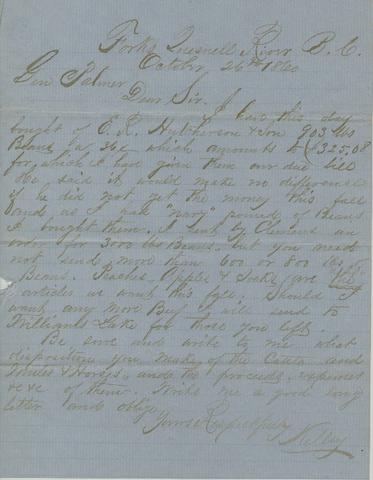 Forks Quesnell River B.C.
October 26th 1860
Genl Palmer
Dear Sir. I have this day
bought of E. R. Hutcherson & Son 903 lbs
Beans @ 36c which amounts to $325,08
for which I had given them our due bill
He said it would make no difference
if he did not get the money this fall
and as I had "nary" pound of Beans
I bought them. I sent by Clemens an
order for 3000 lbs Beans. but you needs
not send more than 600 or 800 lbs of
Beans. Peaches Apples & are the
articles we want this fall. Should I
want any more Beef I will send to
Williams Lake for those you left.
Be sure and write to me what
disposition you make of the Cattle and
Mules & Horses, and the proceeds, expenses
&c &c of them. Write me a good long
letter and oblige
Yours Respectfully
Kelley